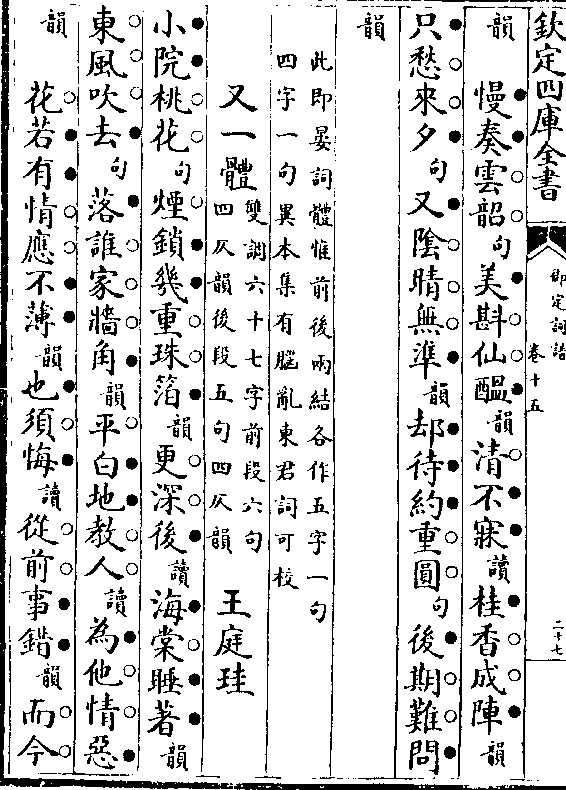 欽定四庫全書
御定詞譜
卷十五
二十七
韻 慢奏雲韶句美斟仙醞韻清不寐讀桂香成陣韻
只愁來夕句又陰晴無準韻却待約重圓句後期難問
韻
此即晏詞體惟前後兩結各作五字一句
四字一句異本集有腦亂東君詞可校
又一體 雙調六十七字前段六句 王庭珪
四仄韻後段五句四仄韻
小院桃花句煙鎖幾重珠箔韻更深後讀海棠睡著韻
東風吹去句落誰家牆角韻平白地教人讀為他情惡
韻 花若有情應不薄韻也須悔讀從前事錯韻而今